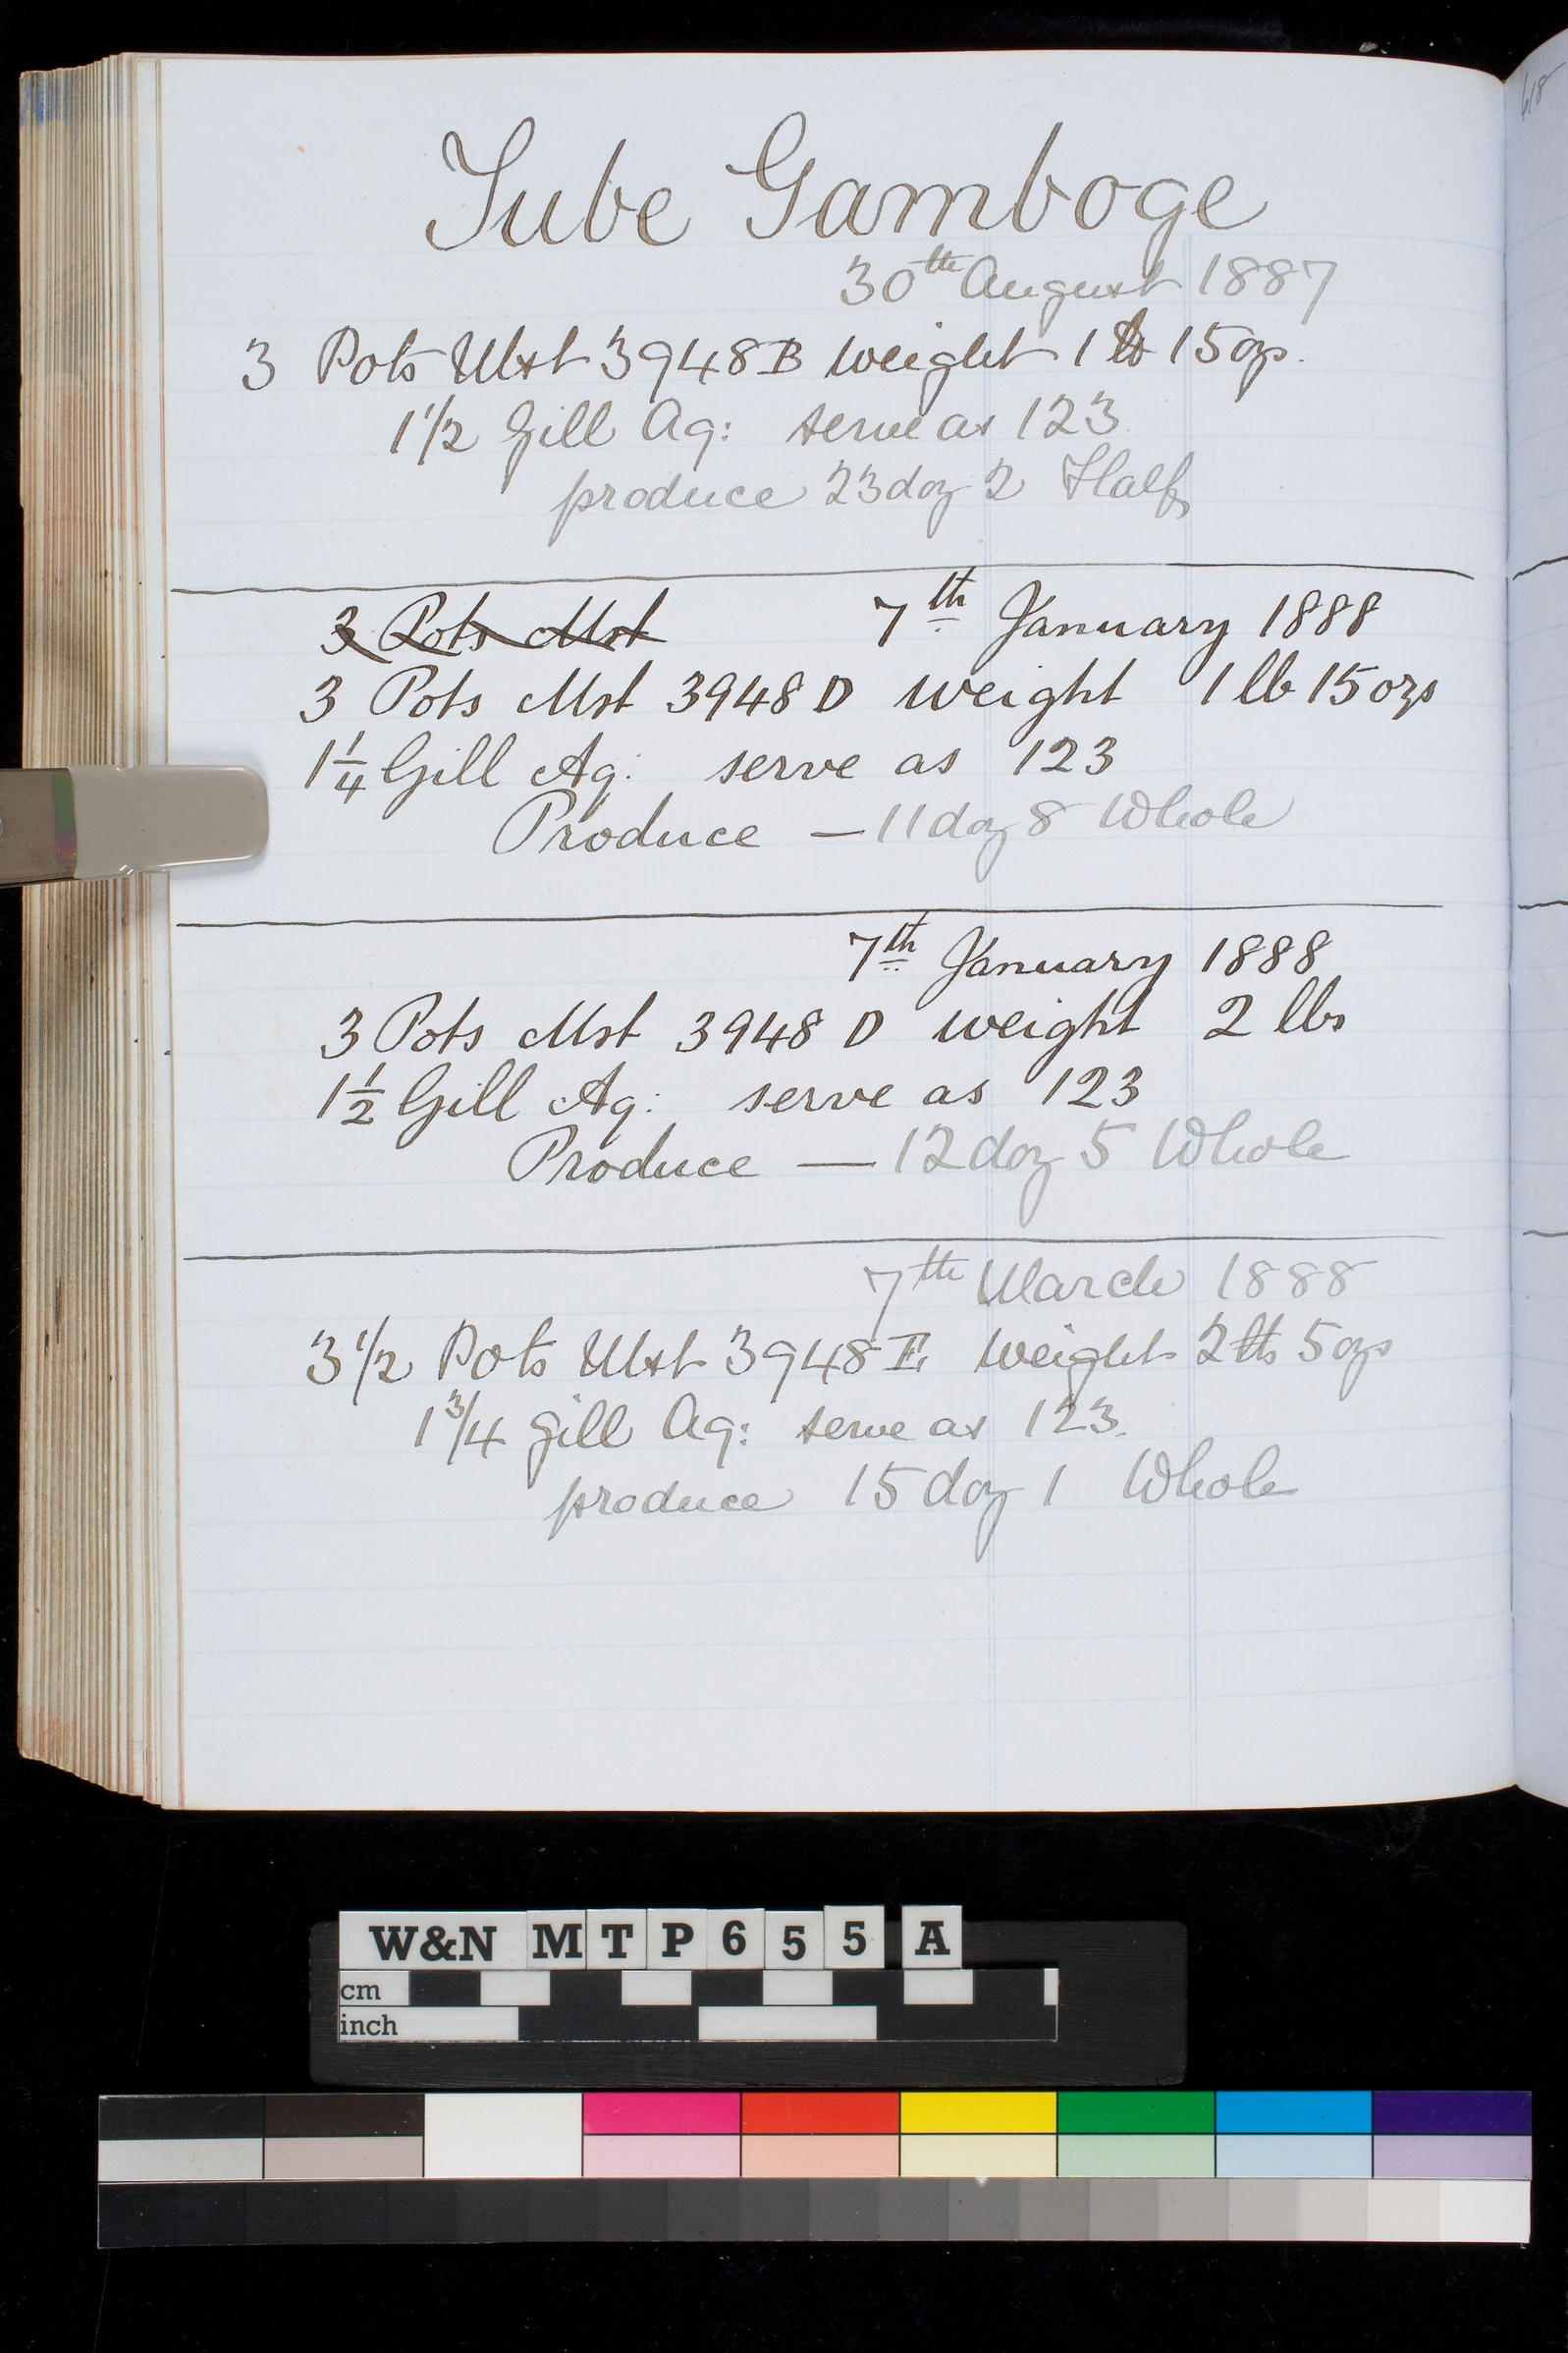 Tube Gamboge
30th August 1887
3 Pots Mst 3948 B weight 1 lb 15 ozs.
1 1/2 Gill Aq: serve as 123
produce 23 doz 2 Halfs
3 Pots Mst 7th January 1888
3 Pots Mst 3948 D weight 1 lb 15 ozs
1 1/4 Gill Aq: serve as 123
Produce — 11 doz 8 Whole
7th January 1888
3 Pots Mst 3948 D weight 2 lbs
1 1/2 Gill Aq: serve as 123
Produce — 12 doz 5 Whole
7th March 1888
3 1/2 Pots Mst 3948 E weight 2 lbs 5 ozs
1 3/4 Gill Aq: serve as 123.
produce 15 doz 1 Whole
618
W&N MTP655 A
cm
inch